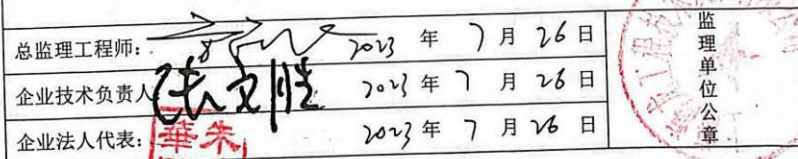 总监理工程师: 2023 年 7 月 26 日
企业技术负责人 张文胜 2023 年 7 月 26 日
企业法人代表: 華朱 2023 年 7 月 26 日
监理单位公章